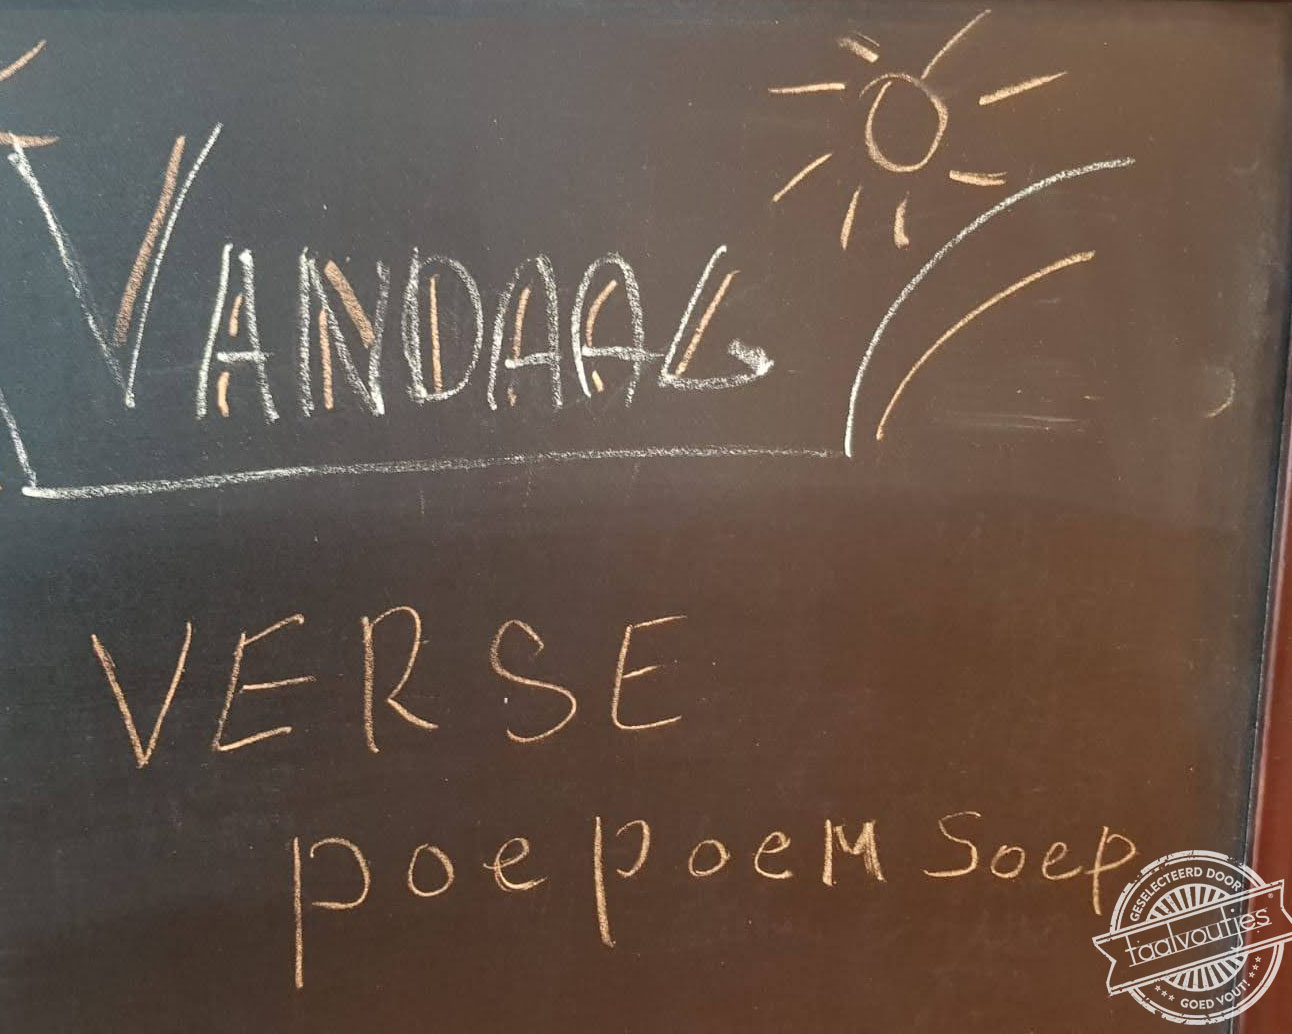 VANDAAG
VERSE
poepoeM soep
GESELECTEERD DOOR
taalvoutjes
GOED VOUT!